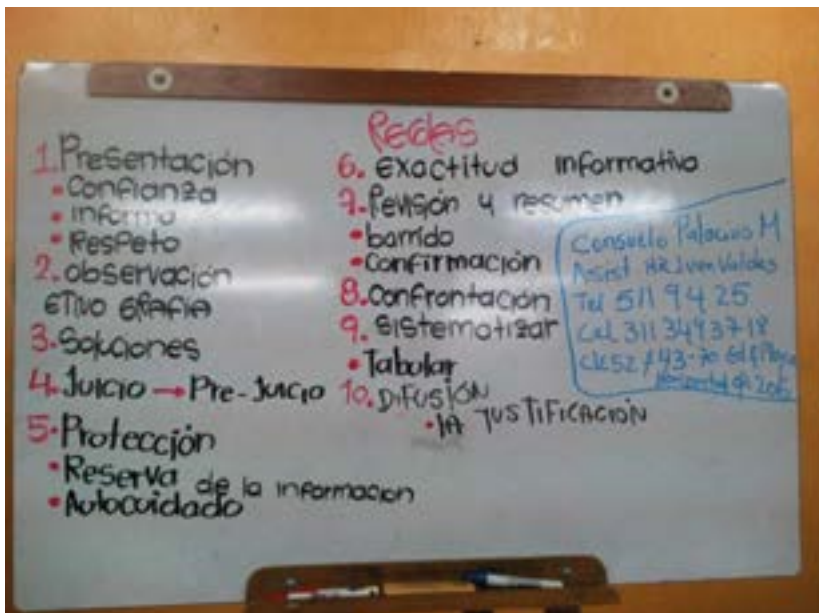 Redes
1. Presentación
• Confianza
• informa
• Respeto
2. observación
ETNO GRAFIA
3. Soluciones
4. Juicio → Pre-Juicio
5. Protección
• Reserva de la informacion
• Autocuidado
6. Exactitud informativa
7. Revisión y resumen
• barrido
• Confirmación
8. Confrontación
9. Sistematizar
• Tabular
10. DIFUSIÓN
• lA JUSTIFICACIÓN
Consuelo Palacios M
Asist Juan Valdes
Tel 511 94 25
Cel 311 3493718
52 # 43-70